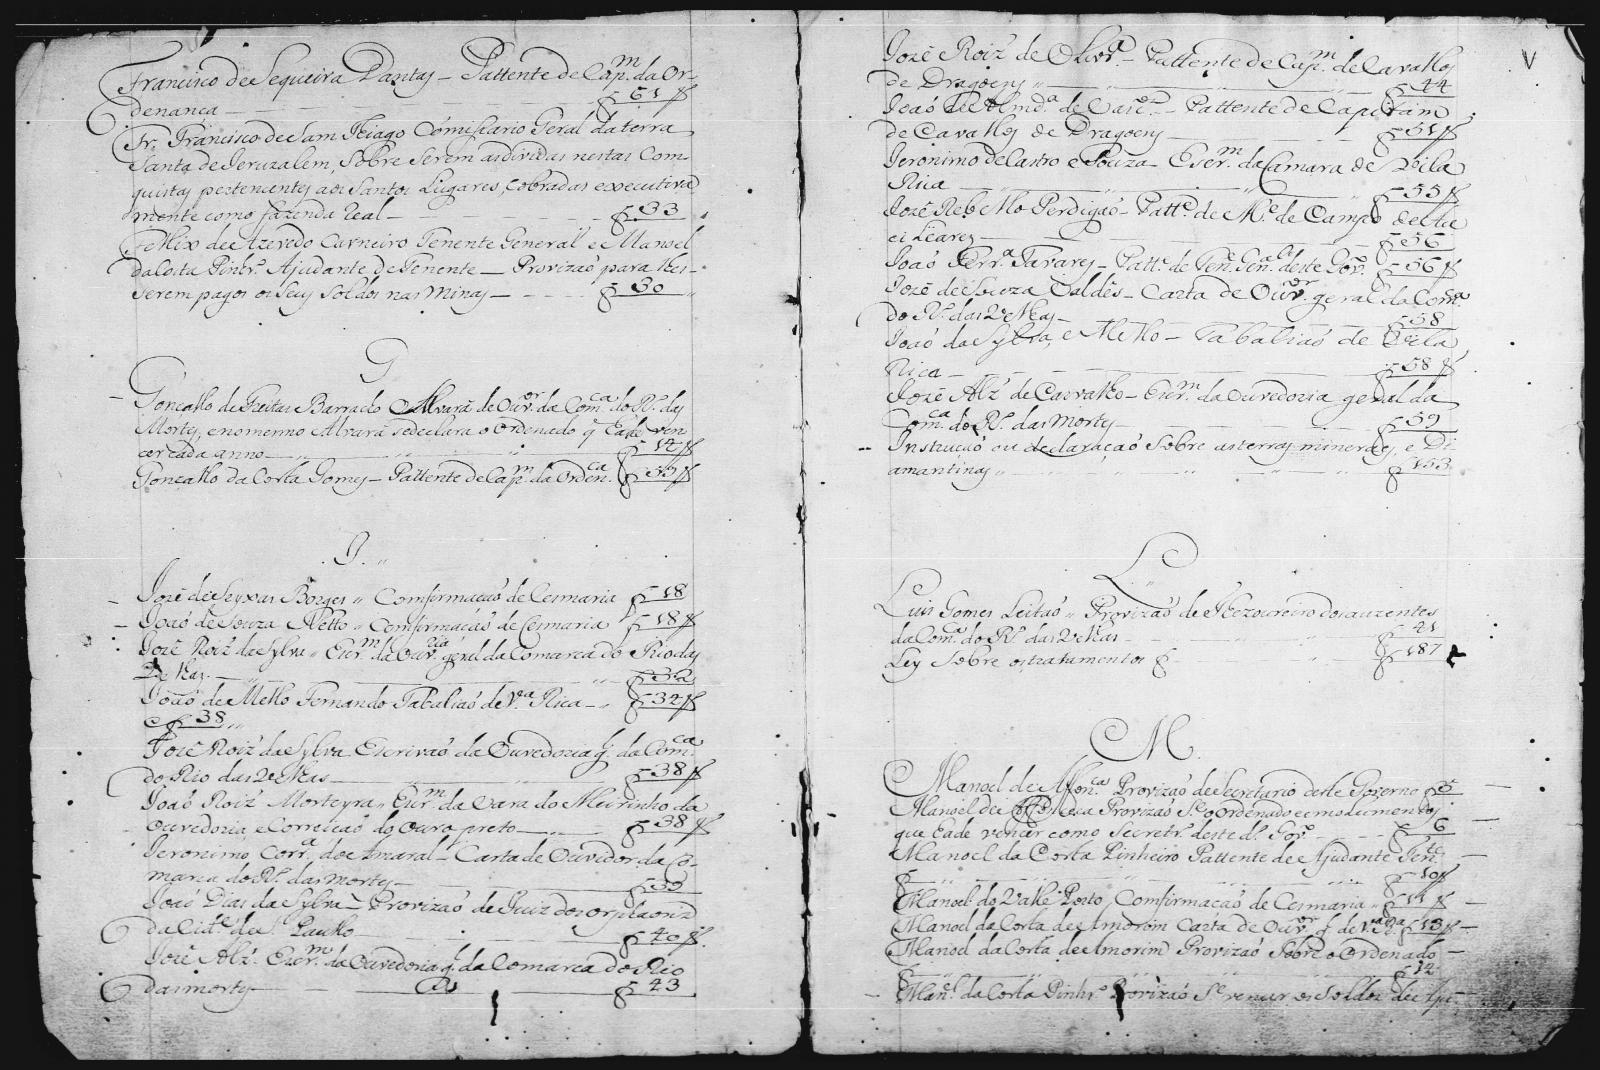 Francisco de Sequeira Dantas — Pattente de Cap.m da Or-
denança — 61
Fr. Francisco de Sam Thiago Comissario Geral da terra
Santa de Jeruzalem, sobre serem as dividas nestas Com-
quistas pertencentes aos Santos Lugares, cobradas executiva
mente como fazenda Real — 33
Felix de Azevedo Carneiro Tenente General e Manoel
da Costa Pinhr.o Ajudante de Tenente — Provizaó para lhes
serem pagos os seus soldos nas Minas — 30
G
Goncallo de Freitas Barracho Alvará de Ouv.or da Com.ca do R.o das
Mortes, e no mesmo Alvará se declara o Ordenado q̃ hade ven
cer cada anno — 14
Goncallo da Costa Gomes — Pattente de Cap.m da Orden.ca 39
J
Jozé de Seyxas Borges Comfirmaçaó de Cesmaria 18
Joaó de Souza Netto Comfirmaçaó de Cesmaria 18
Jozé Roiz' da Sylva Escr.m da Ouv.ria geral da Comarca do Rio das
Velhas 32
Joaó de Mello Fernando Tabaliaó de V.a Rica 34
e f 38
Jozé Roiz' da Sylva Escrivaó da Ouvedoria g̃. da Com.ca
do Rio das Velhas 38
Joaó Roiz' Morteyra Escr.m da Vara do Meirinho da
Ouvedoria, e Correicaó do Ouro preto 38
Jeronimo Corr.a do Amaral — Carta de Ouvidor da Co-
marca do R.o das Mortes 39
Joaó Dias da Sylva — Provizaó de Juiz dos orphaons
da Cid.e de S. Paullo 40
Jozé Alz' Escr.m da Ouvedoria g̃. da Comarca do Rio
das mortes 43
V
Jozé Roiz' de Olivr.a — Pattente de Cap.m de Cavallos
de Dragoens 44
Joaó de Almd.a de Vasc.os — Pattente de Capitam
de Cavallos de Dragoens 51
Jeronimo de Castro e Souza — Escr.m da Camara de Vila
Rica 55
Jozé Rebello Perdigaó — Patt.e de M.e de Campo
56
Joaó Ferr.a Tavares — Patt.e de Ten.e Gen.al deste Gov.o 56
Jozé de Souza Valdes — Carta de Ouv.or geral da Com.ca
do R.o das Velhas 58
Joaó da Sylva, e Mello — Tabaliaó de Vila
Rica 58
Jozé Alz' de Carvalho — Escr.m da Ouvedoria geral da
Com.ca do R.o das Mortes 59
Instrucaó ou declaracaó sobre as terras mineraes, e Di-
amantinas 153
L
Luis Gomes Leitaó Provizaó de Thezoureiro dos auzentes
da Com.ca do R.o das Velhas 41
Ley sobre os tratamentos 187
M
Manoel de Affon.ca Provizaó de Secretario deste Governo 5
Manoel de Provizaó S.e o Ordenado e emolumentos
que hade vencer como Secretr.o deste d.o Gov.o 6
Manoel da Costa Pinheiro Pattente de Ajudante Ten.te
10
Manoel do Valle Porto, Comfirmacaó de Cesmaria 11
Manoel da Costa de Amorim Carta de Ouv.or g̃. de V.a R.a 13
Manoel da Costa de Amorim Provizaó Sobre o Ordenado
12
Man.el da Costa Pinhr.o Provizaó S.e vencer os soldos de Aju-